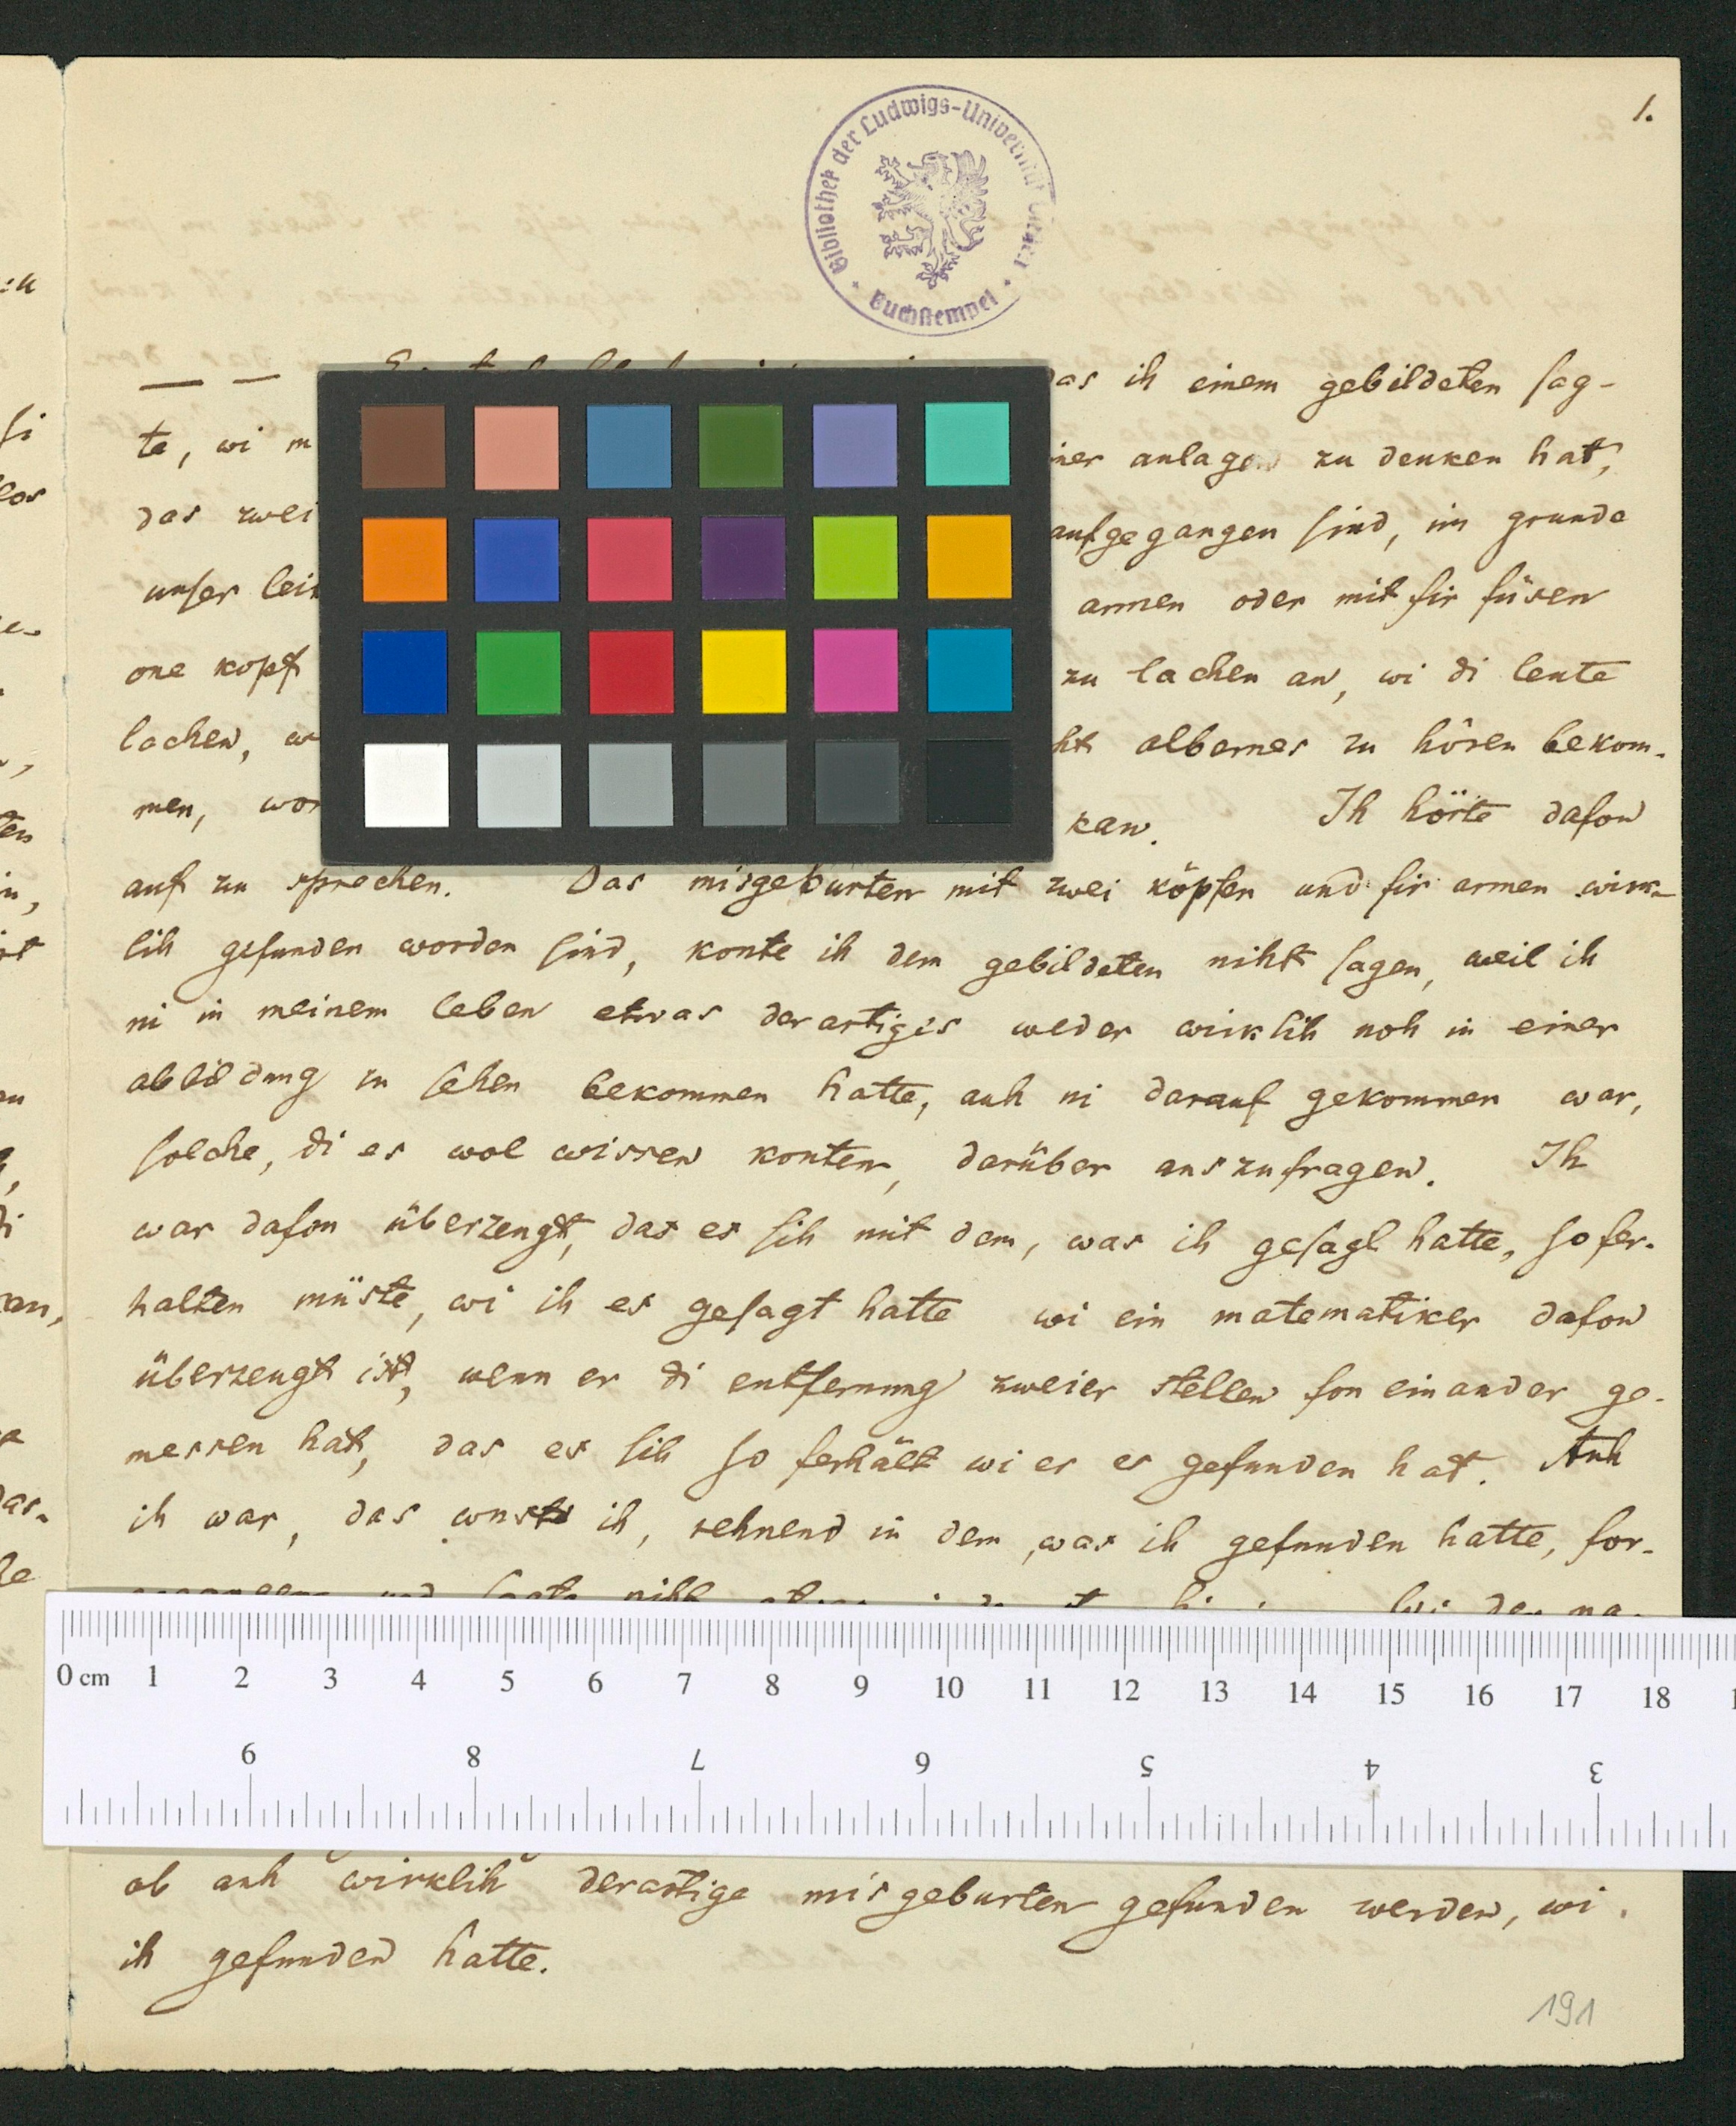 1.
Bibliothek der Ludwigs-Universität Giessen
Buchstempel
— — das ih einem gebildeten sag-
te, wi einer anlagen zu denken hat,
das zwei aufgegangen sind, im grunde
unser armen oder mit fir füsen
one kopf zu lachen an, wi di leute
lachen, albernes zu hören bekom-
men, kan. Ih hörte dafon
auf zu sprechen. Das misgeburten mit zwei köpfen und fir armen wirk-
lih gefunden worden sind, konte ih dem gebildeten niht sagen, weil ih
ni in meinem leben etwas derartiges weder wirklih noh in einer
abbildung zu sehen bekommen hatte, auh ni darauf gekommen war,
solche, di es wol wissen konten, darüber auszufragen. Ih
war dafon überzeugt, das es sih mit dem, was ih gesagt hatte, so fer-
halten müste, wi ih es gesagt hatte wi ein matematiker dafon
überzeugt ist, wenn er di entfernung zweier stellen fon einander ge-
messen hat, das es sih so ferhält wi er es gefunden hat. Auh
ih war, das wuste ih, rehnend in dem, was ih gefunden hatte, for-
0 cm 1 2 3 4 5 6 7 8 9 10 11 12 13 14 15 16 17 18
9 8 7 6 5 4 3
ob auh wirklih derartige misgeburten gefunden werden, wi
ih gefunden hatte.
191